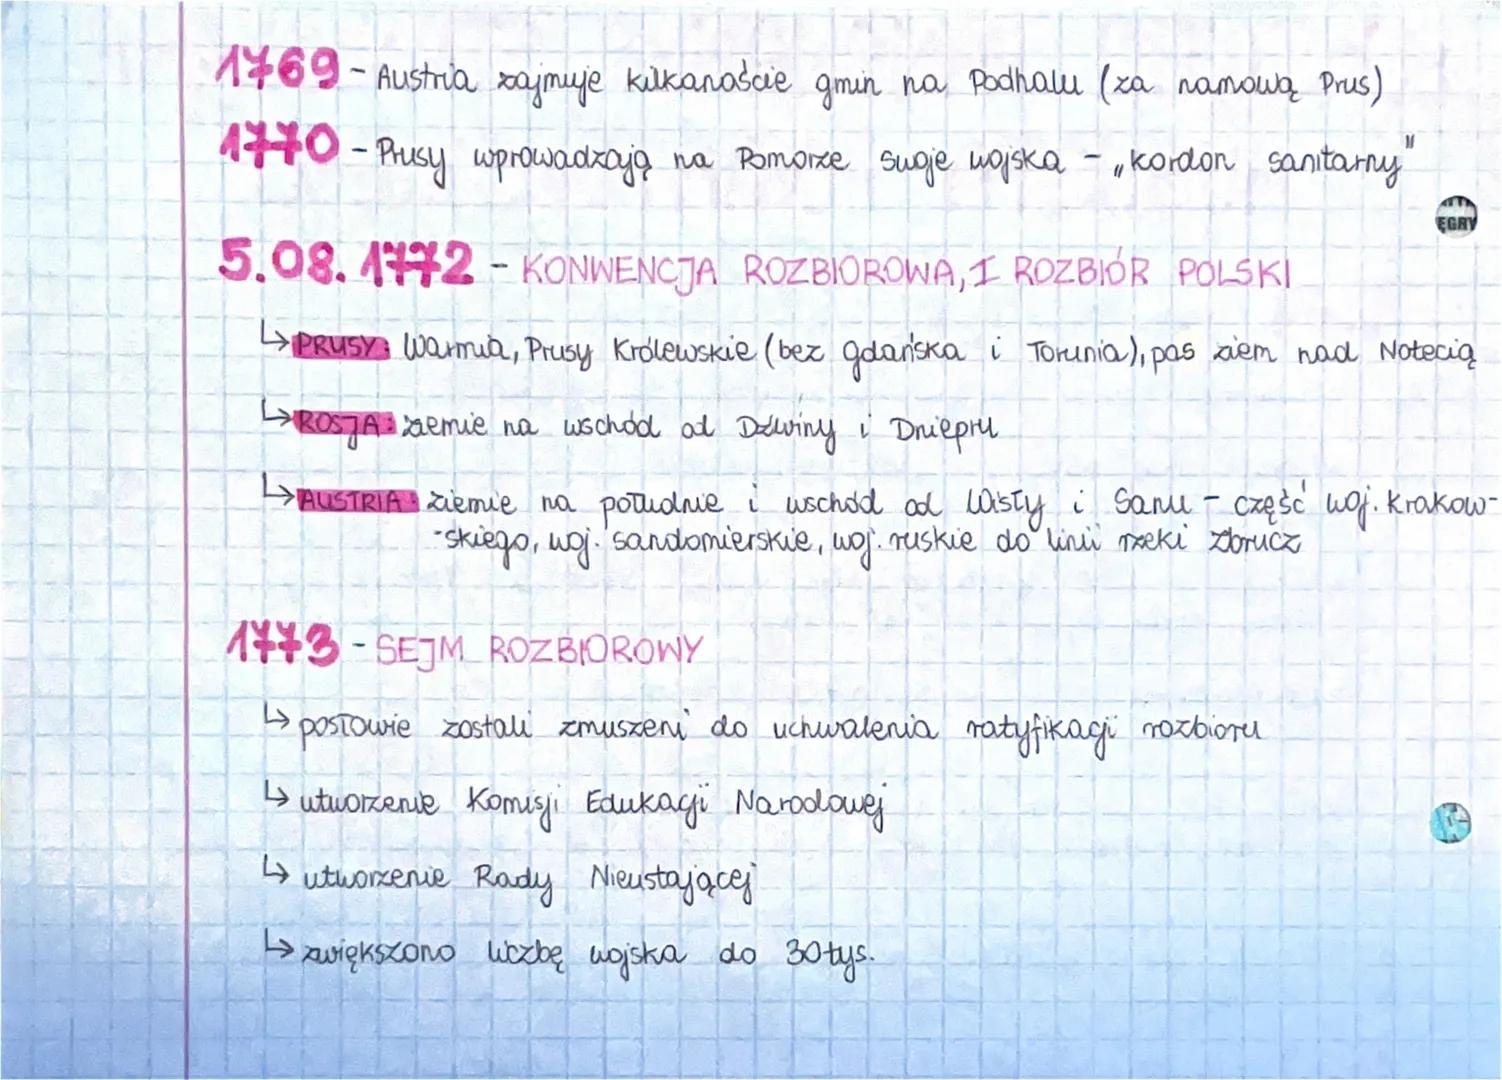 1769 - Austria zajmuje kilkanaście gmin na Podhalu (za namową Prus)
1770 - Prusy wprowadzają na Pomorze swoje wojska - „kordon sanitarny"
ĘGRY
5.08.1772 - KONWENCJA ROZBIOROWA, I ROZBIÓR POLSKI
↳ PRUSY: Warmia, Prusy Królewskie (bez gdańska i Torunia), pas ziem nad Notecią
↳ ROSJA: ziemie na wschód od Dźwiny i Dniepru
↳ AUSTRIA: ziemie na południe i wschód od Wisły i Sanu - część woj. krakow-
-skiego, woj. sandomierskie, woj. ruskie do linii rzeki Zbrucz
1773 - SEJM ROZBIOROWY
↳ posłowie zostali zmuszeni do uchwalenia ratyfikacji rozbioru
↳ utworzenie Komisji Edukacji Narodowej
↳ utworzenie Rady Nieustającej
↳ zwiększono liczbę wojska do 30 tys.